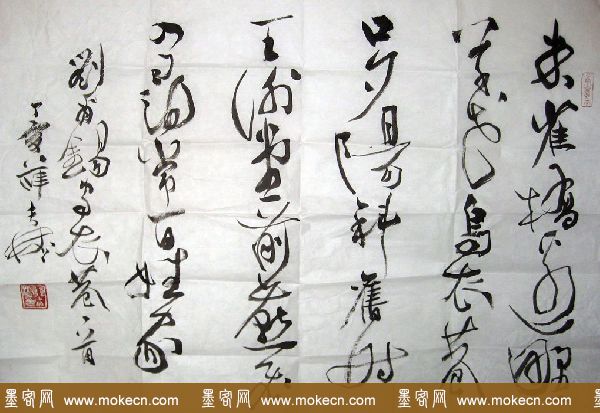 朱雀橋邊野
草花烏衣巷
口夕陽斜舊時
王謝堂前燕飛
入尋常百姓家
劉禹錫烏衣巷一首
丁亥薛
墨客网 www.mokecn.com 墨客网 www.mokecn.com 墨客网 www.mokecn.com